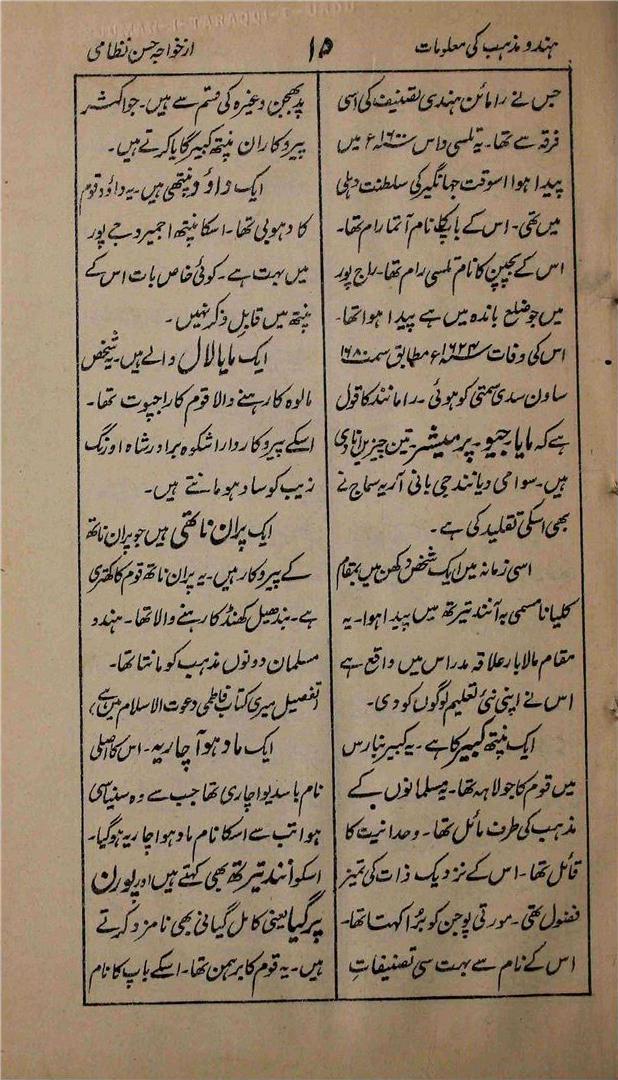 ہندو مذہب کی معلومات
۱۵
از خواجہ حسن نظامی
جس نے رامائن ہندی تصنیف کی اسی
فرقہ سے تھا۔ یہ تلسی داس ۱۶۰۰ء میں
پیدا ہوا اسوقت جہانگیر کی سلطنت دہلی
میں تھی۔ اس کے باپ کا نام آتما رام تھا۔
اس کے بچپن کا نام تلسی رام تھا۔ راج پور
میں جو ضلع باندہ میں ہے پیدا ہوا تھا۔
اس کی وفات ۱۶۲۴ء مطابق سمت ۱۶۸۰
ساون سدی سمتی کو ہوئی۔ رامانند کا قول
ہے کہ مایا۔ جیو۔ پرمیشر۔ تین چیزیں انادی
ہیں۔ سوامی دیانند جی بانی آریہ سماج نے
بھی اسکی تقلید کی ہے۔
اسی زمانہ میں ایک شخص دکھن میں بمقام
کلیانا مسمی بہ آنند تیرتھ میں پیدا ہوا۔ یہ
مقام مالابار علاقہ مدراس میں واقع ہے
اس نے اپنی نئی تعلیم لوگوں کو دی۔
ایک پنتھ کبیر کا ہے۔ یہ کبیر بنارس
میں قوم کا جولاہہ تھا۔ یہ مسلمانوں کے
مذہب کی طرف مائل تھا۔ وحدانیت کا
قائل تھا۔ اس کے نزدیک ذات کی تمیز
فضول تھی۔ مورتی پوجن کو بُرا کہتا تھا۔
اس کے نام سے بہت سی تصنیفات
پد بھجن وغیرہ کی قسم سے ہیں۔ جو اکثر
پیروکاران پنتھ کبیر گایا کرتے ہیں۔
ایک داؤد پنتھی ہیں۔ یہ داؤد قوم
کا دھوبی تھا۔ اسکا پنتھ اجمیر و جے پور
میں بہت ہے۔ کوئی خاص بات اس کے
پنتھ میں قابل ذکر نہیں۔
ایک مایا لال والے ہیں۔ یہ شخص
مالوہ کا رہنے والا قوم کا راجپوت تھا۔
اسکے پیروکار دارا شکوہ برادر شاہ اورنگ
زیب کو سادھو مانتے ہیں۔
ایک پران ناتھی ہیں جو پران ناتھ
کے پیروکار ہیں۔ یہ پران ناتھ قوم کا کھتری
ہے۔ بندھیل کھنڈ کا رہنے والا تھا۔ ہندو
مسلمان دونوں مذہب کو مانتا تھا۔
(تفصیل میری کتاب فاطمی دعوت الاسلام میں ہے)
ایک مادھوآچاریہ۔ اس کا اصلی
نام باسدیو اچاری تھا جب سے وہ سنیاسی
ہوا تب سے اسکا نام مادھوا چاریہ ہو گیا۔
اسکو انند تیرتھ بھی کہتے ہیں اور پورن
پرگیا یعنی کامل گیانی بھی نامزد کرتے
ہیں۔ یہ قوم کا برہمن تھا۔ اسکے باپ کا نام